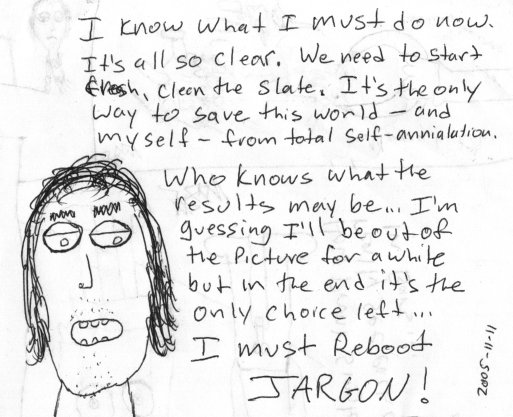 I know what I must do now.
It's all so clear. We need to start
fresh, clean the slate. It's the only
way to save this world - and
myself - from total self-annialation.
Who knows what the
results may be... I'm
guessing I'll be out of
the Picture for a while
but in the end it's the
only choice left...
I must Reboot
JARGON!
11-11-2005